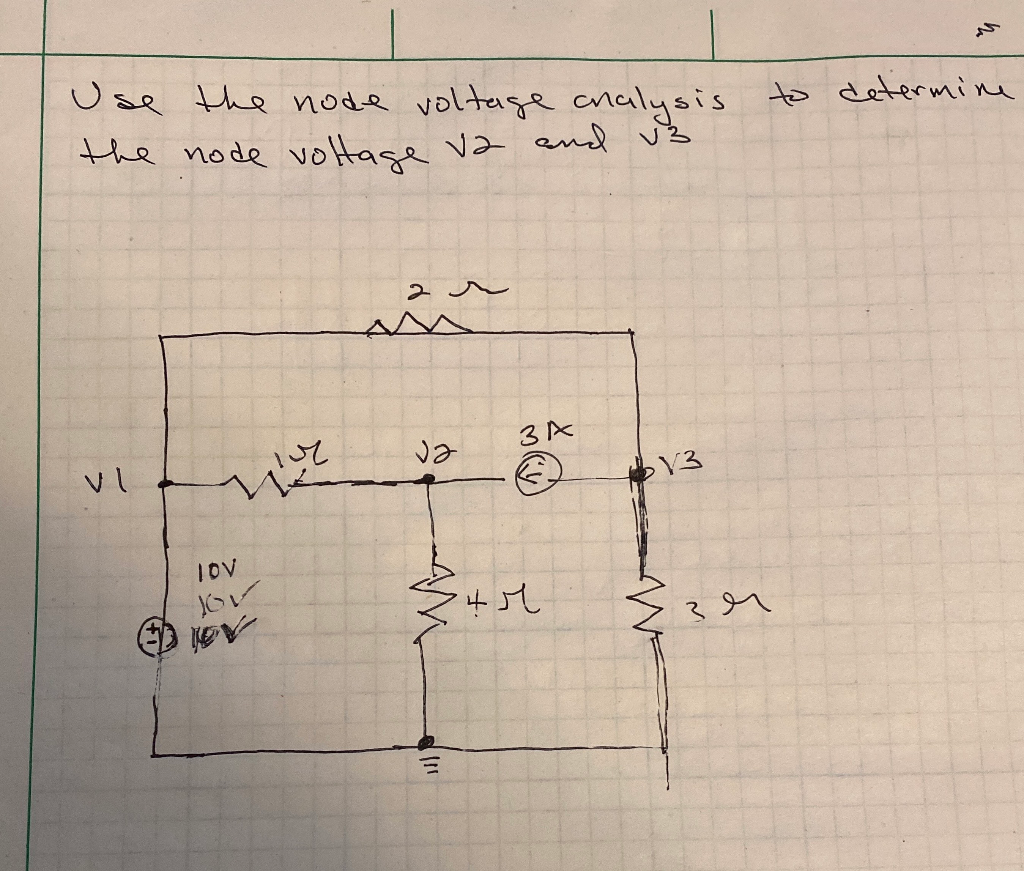 Use the node voltage analysis to determine
the node voltage V2 and V3
2 Ω
3A
1Ω
V2
V3
V1
10V
10V
10V
+
-
4 Ω
3 Ω